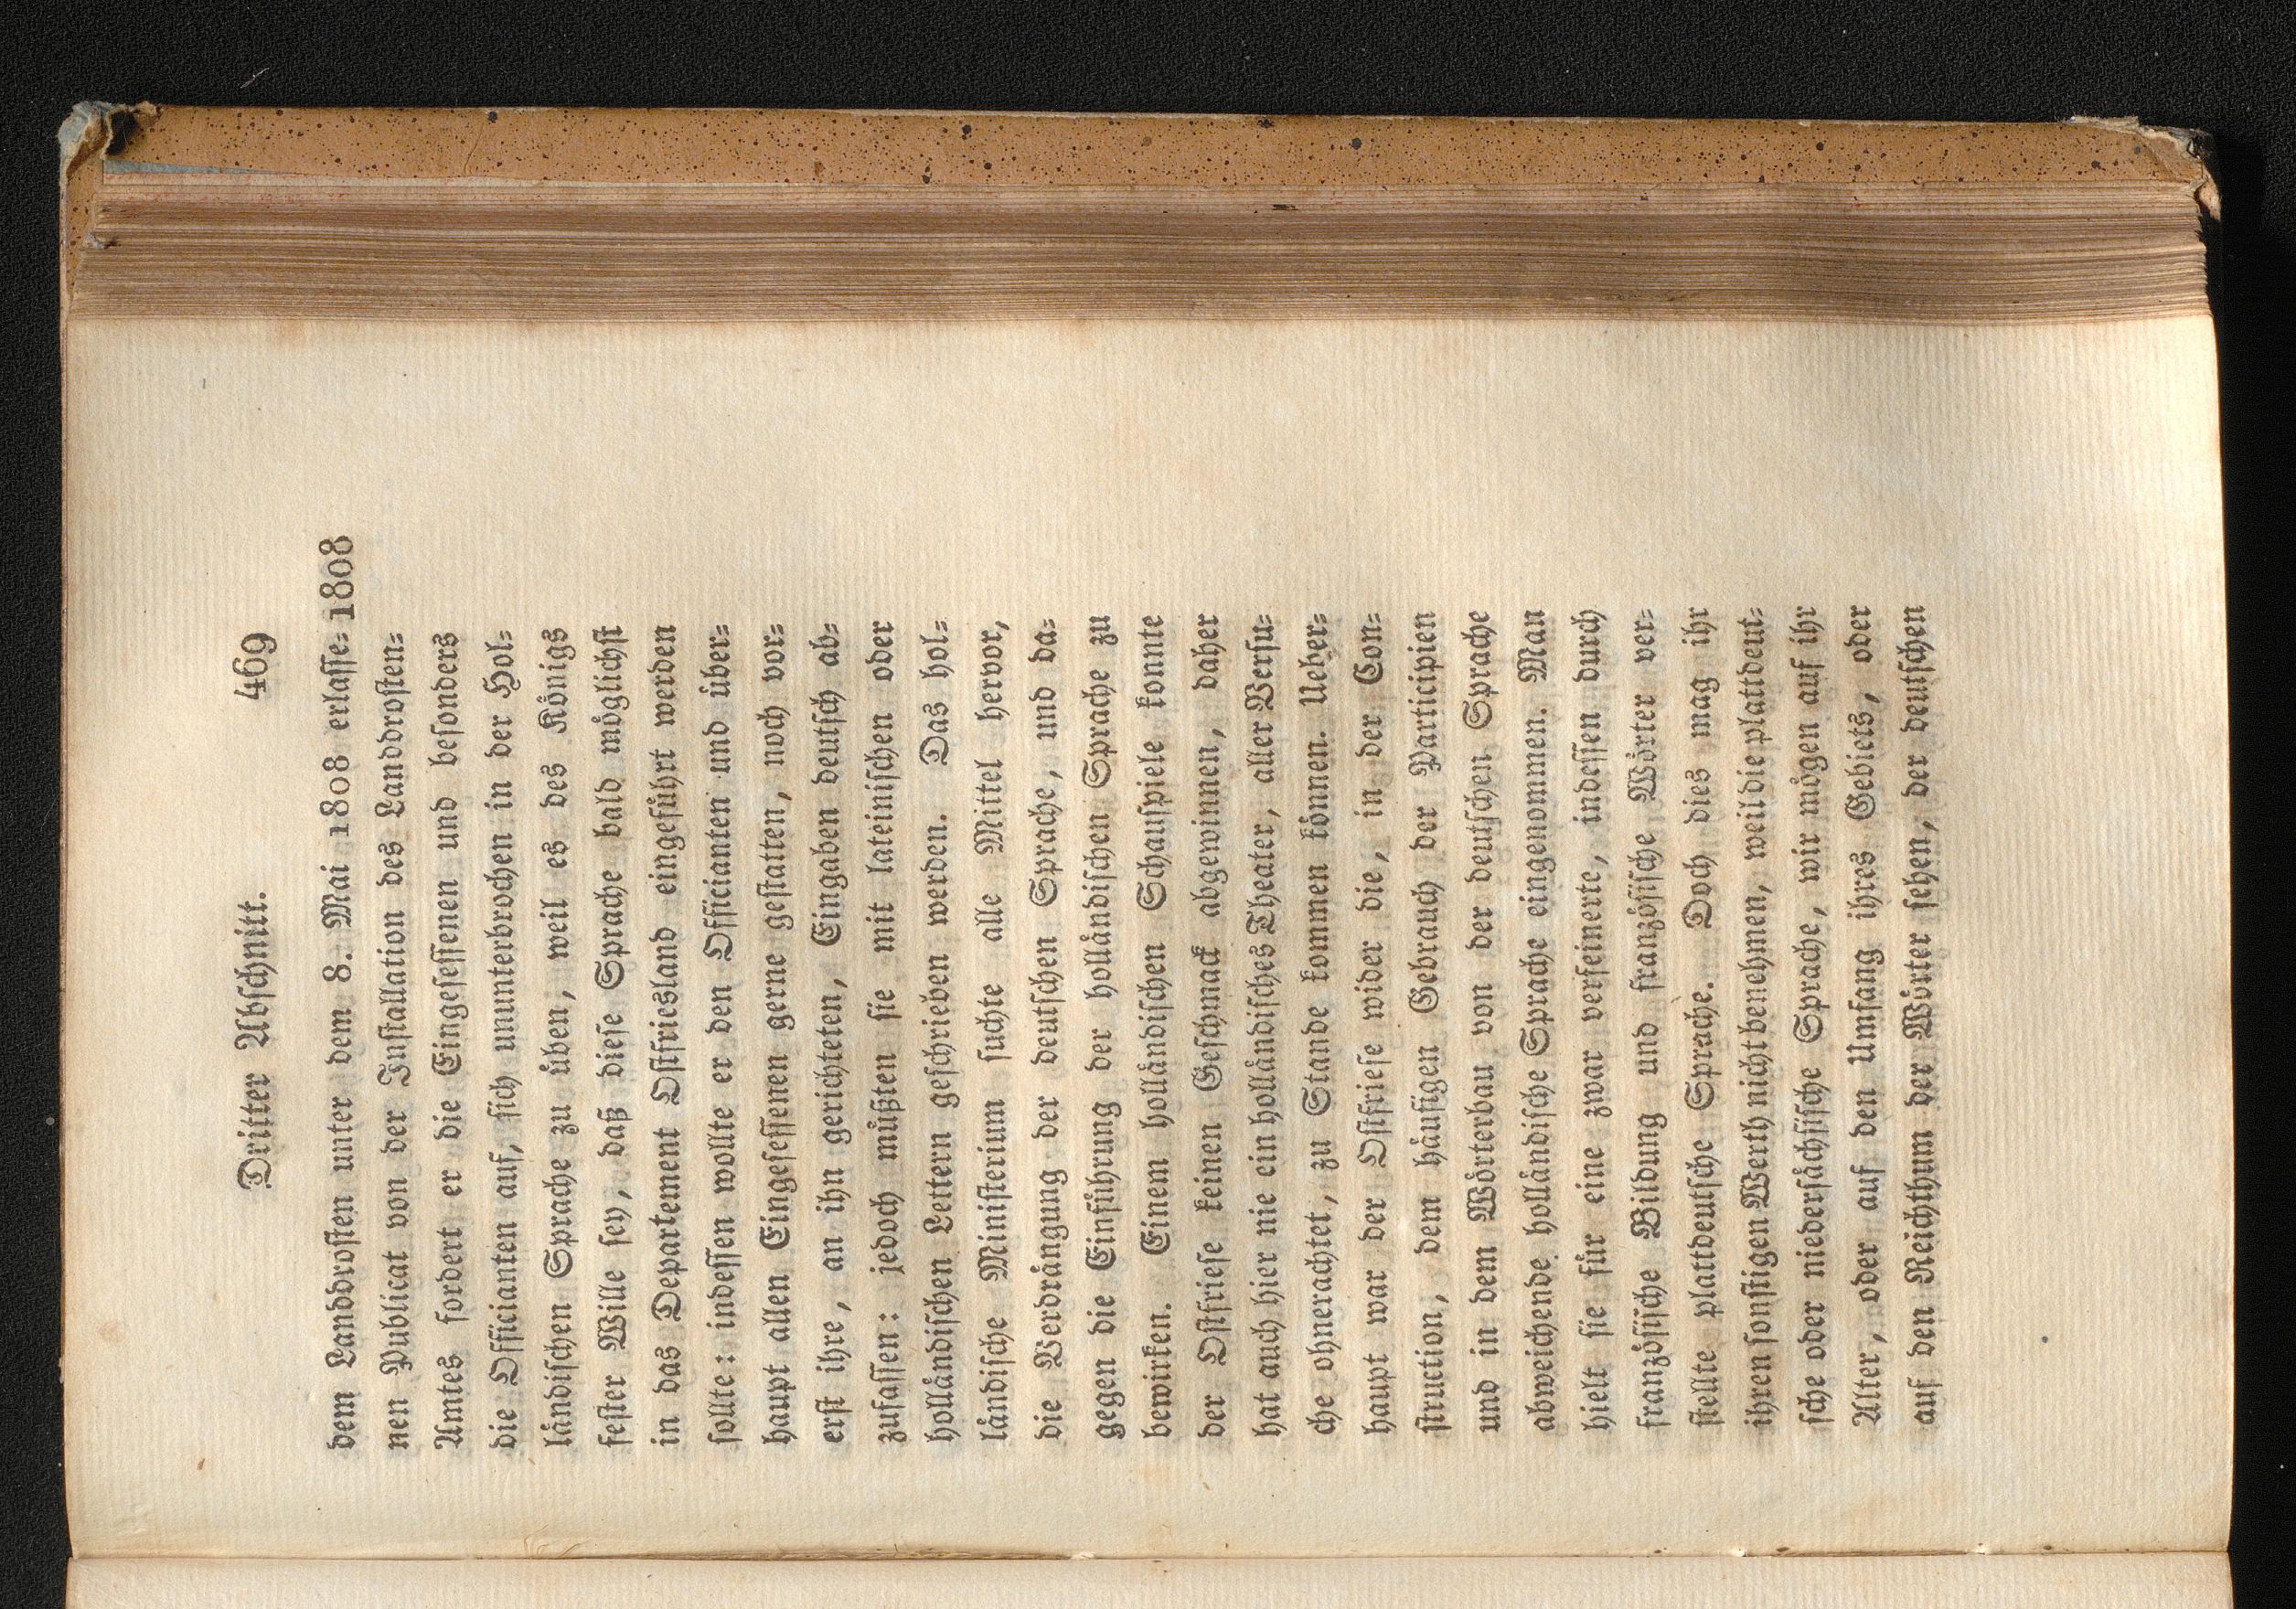 Dritter Abschnitt. 469
dem Landdrosten unter dem 8. Mai 1808 erlasse= 1808
nen Publicat von der Installation des Landdrosten=
Amtes fordert er die Eingesessenen und besonders
die Officianten auf, sich ununterbrochen in der Hol=
ländischen Sprache zu üben, weil es des Königs
fester Wille sey, daß diese Sprache bald möglichst
in das Departement Ostfriesland eingeführt werden
sollte: indessen wollte er den Officianten und über=
haupt allen Eingesessenen gerne gestatten, noch vor=
erst ihre, an ihn gerichteten, Eingaben deutsch ab=
zufassen: jedoch müßten sie mit lateinischen oder
holländischen Lettern geschrieben werden. Das hol=
ländische Ministerium suchte alle Mittel hervor,
die Verdrängung der deutschen Sprache, und da=
gegen die Einführung der holländischen Sprache zu
bewirken. Einem holländischen Schauspiele konnte
der Ostfriese keinen Geschmack abgewinnen, daher
hat auch hier nie ein holländisches Theater, aller Versu=
che ohnerachtet, zu Stande kommen können. Ueber=
haupt war der Ostfriese wider die, in der Con=
struction, dem häufigen Gebrauch der Participien
und in dem Wörterbau von der deutschen Sprache
abweichende holländische Sprache eingenommen. Man
hielt sie für eine zwar verfeinerte, indessen durch
französische Bildung und französische Wörter ver=
stellte plattdeutsche Sprache. Doch dies mag ihr
ihren sonstigen Werth nicht benehmen, weil die plattdeut=
sche oder niedersächsische Sprache, wir mögen auf ihr
Alter, oder auf den Umfang ihres Gebiets, oder
auf den Reichthum der Wörter sehen, der deutschen